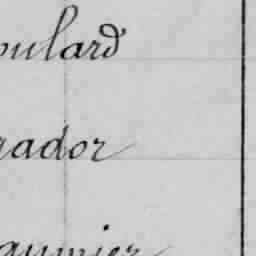 oulard
rador
gunier